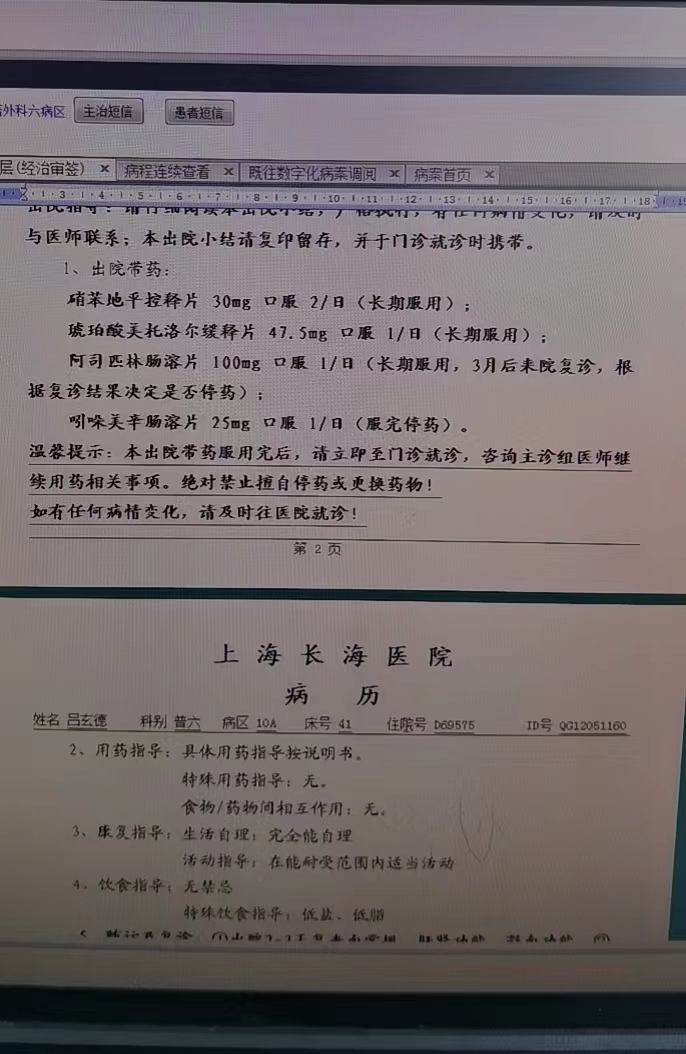 外科六病区 主治短信 患者短信
层(经治审签) × 病程连续查看 × 既往数字化病案调阅 × 病案首页 ×
3 4 5 6 7 8 9 10 11 12 13 14 15 16 17 18
与医师联系；本出院小结请复印留存，并于门诊就诊时携带。
1、出院带药：
硝苯地平控释片 30mg 口服 2/日（长期服用）；
琥珀酸美托洛尔缓释片 47.5mg 口服 1/日（长期服用）；
阿司匹林肠溶片 100mg 口服 1/日（长期服用，3月后来院复诊，根
据复诊结果决定是否停药）；
吲哚美辛肠溶片 25mg 口服 1/日（服完停药）。
温馨提示：本出院带药服用完后，请立即至门诊就诊，咨询主诊组医师继
续用药相关事项。绝对禁止擅自停药或更换药物！
如有任何病情变化，请及时往医院就诊！
第 2 页
上海长海医院
病 历
姓名 吕玄德 科别 普六 病区 10A 床号 41 住院号 D69575 ID号 QG12051160
2、用药指导：具体用药指导按说明书。
特殊用药指导：无。
食物/药物间相互作用：无。
3、康复指导：生活自理：完全能自理
活动指导：在能耐受范围内适当活动
4、饮食指导：无禁忌
特殊饮食指导：低盐、低脂